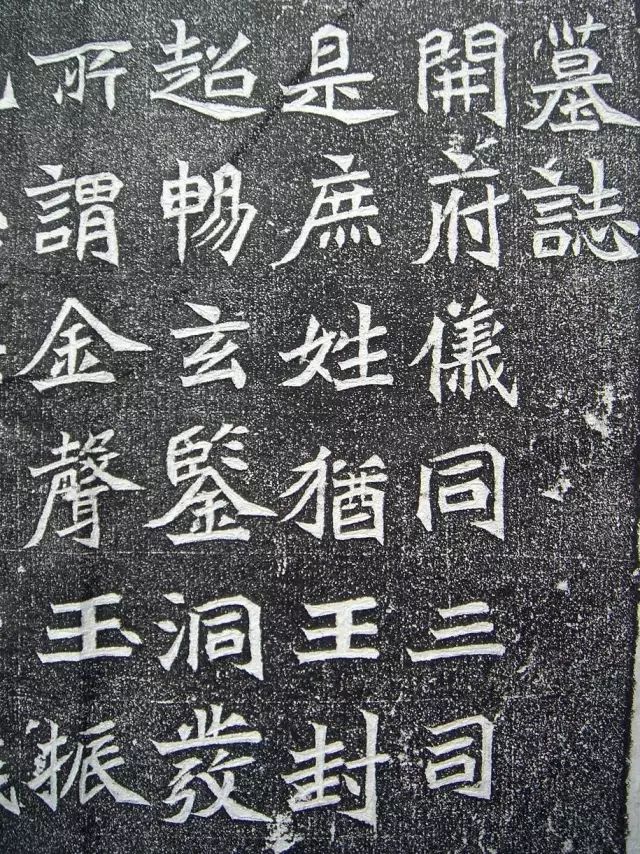 墓誌
開府儀同三司
是庶姓猶王封
超暢玄鑒洞發
所謂金聲玉振